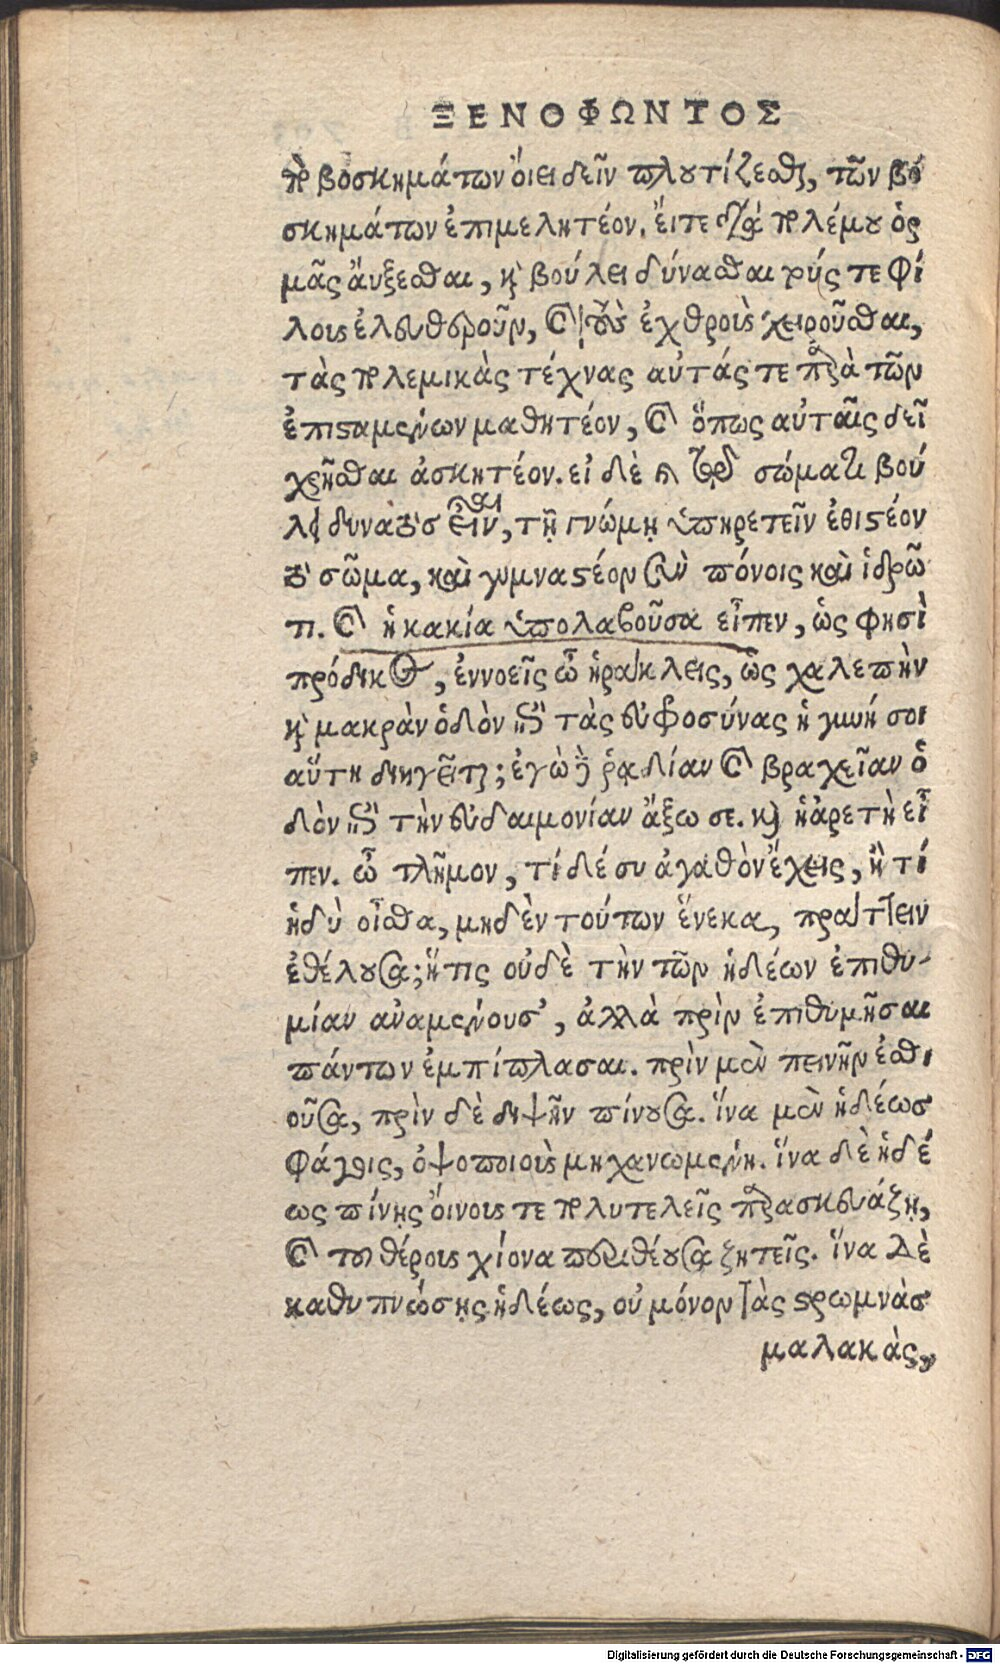 ΞΕΝΟΦΩΝΤΟΣ
πὸ βοσκημάτων ὄιει δεῖν πλουτίζεσθαι, τῶν βο
σκημάτων ἐπιμελητέον. ἔιτε διὰ πολέμου ὁρ
μᾷς ἄυξεσθαι, καὶ βούλει δύνασθαι τούς τε φί
λους ἐλευθεροῦν, καὶ τοὺς ἐχθροὺς χειροῦσθαι,
τὰς πολεμικὰς τέχνας αὐτάς τε παρὰ τῶν
ἐπισταμένων μαθητέον, καὶ ὅπως αὐταῖς δεῖ
χρῆσθαι ἀσκητέον. εἰ δὲ καὶ τῷ σώματι βού
λει δυνατὸς εἶναι, τῇ γνώμῃ ὑπηρετεῖν ἐθιστέον
τὸ σῶμα, καὶ γυμναστέον σὺν πόνοις καὶ ἱδρῶ
τι. καὶ ἡ κακία ὑπολαβοῦσα εἶπεν, ὡς φησὶ
πρόδικος, ἐννοεῖς ὦ ἡράκλεις, ὡς χαλεπὴν
καὶ μακρὰν ὁδὸν ἐπὶ τὰς εὐφροσύνας ἡ γυνή σοι
αὕτη διηγεῖται; ἐγὼ δὲ ῥᾳδίαν καὶ βραχεῖαν ὁ
δὸν ἐπὶ τὴν εὐδαιμονίαν ἄξω σε. καὶ ἡ ἀρετὴ εἶ
πεν. ὦ τλῆμον, τί δέ συ ἀγαθὸν ἔχεις, ἢ τί
ἡδὺ οἶσθα, μηδὲν τούτων ἕνεκα, πράττειν
ἐθέλουσα; ἥτις οὐδὲ τὴν τῶν ἡδέων ἐπιθυ-
μίαν ἀναμένουσ', ἀλλὰ πρὶν ἐπιθυμῆσαι
πάντων ἐμπίπλασαι. πρὶν μὲν πεινῆν ἐσθί
οῦσα, πρὶν δὲ διψῆν πίνουσα. ἵνα μὲν ἡδέως
φάγῃς, ὀψοποιοὺς μηχανωμένη. ἵνα δὲ ἡδέ
ως πίνῃς ὄινους τε πολυτελεῖς παρασκευάζῃ,
καὶ τοῦ θέρους χίονα περιθέουσα ζητεῖς. ἵνα δὲ
καθυπνώσῃς ἡδέως, οὐ μόνον τὰς στρωμνὰς
μαλακὰς,
Digitalisierung gefördert durch die Deutsche Forschungsgemeinschaft - DFG